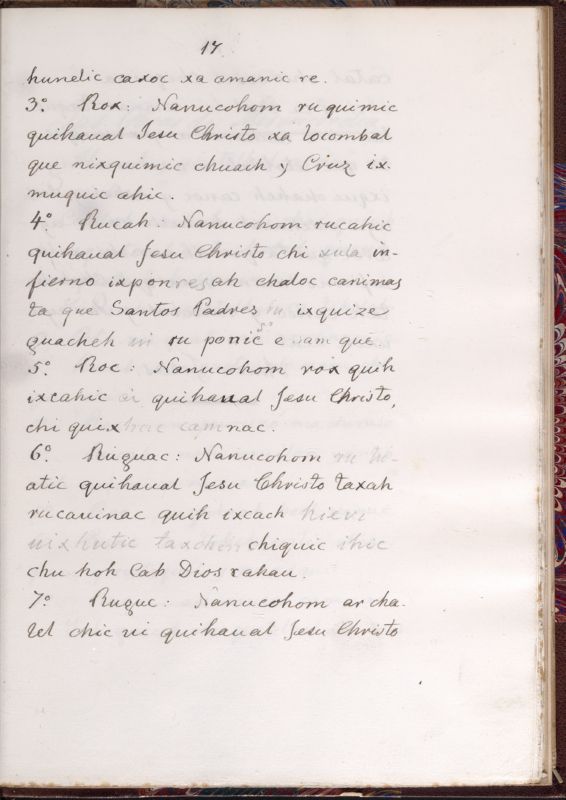 17.
hunelic caxoc xa amanic re.
3º Rox: Nanucohom ruquimic
quihaual Jesu Christo xa locombal
que nixquimic chuach y Cruz ix.
muquic ahic.
4º Rucah: Nanucohom rucahic
quihaual Jesu Christo chi xula in-
fierno ixponresah chaloc canimas
ta que Santos Padres ixquize
guacheh ru ponic e sam que.
5º Roc: Nanucohom rox quih
ixcahic quihaual Jesu Christo,
chi quix camnac.
6º Ruguac: Nanucohom
atic quihaual Jesu Christo taxah
rucauinac quih ixcach
chiquic ihic
chu hoh Cab Dios rahau.
7º Ruguc: Nanucohom ar cha-
lel chic ui quihaual Jesu Christo